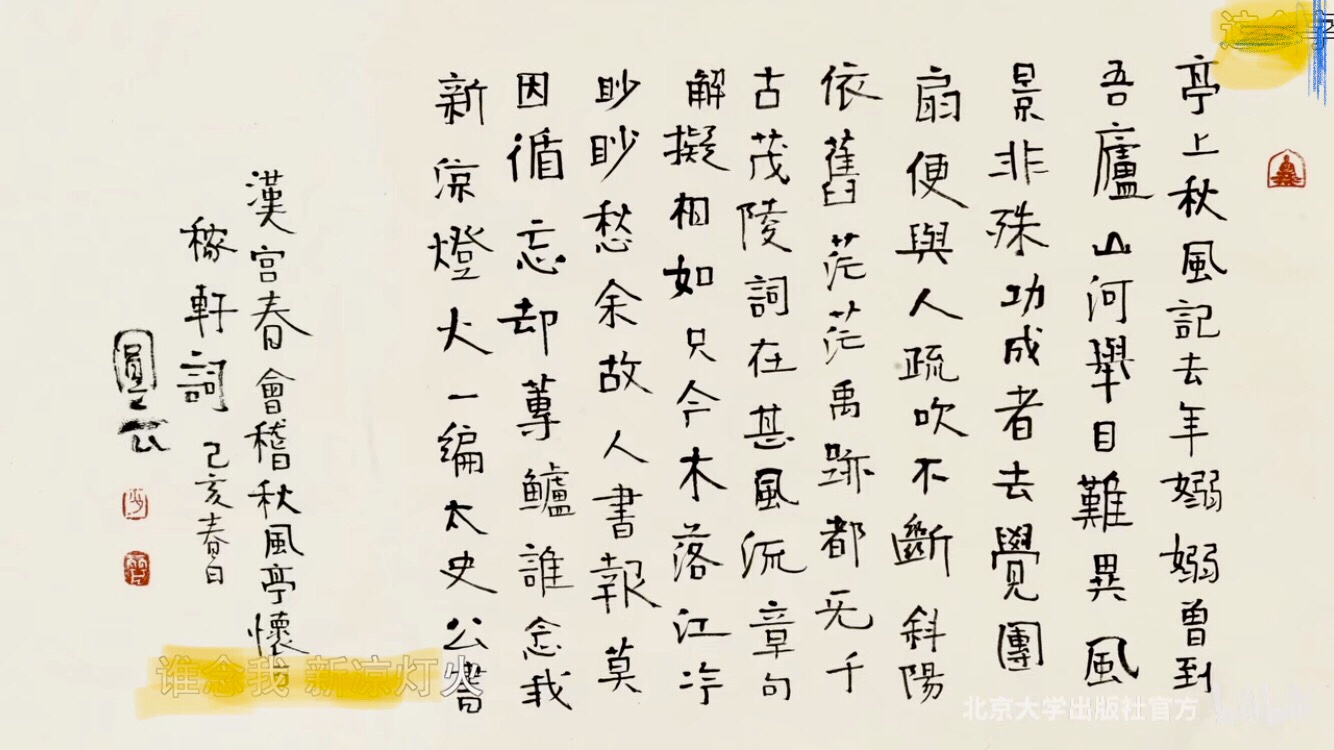 亭上秋風記去年嫋嫋曾到
吾廬山河舉目難異風
景非殊功成者去覺團
扇便與人疏吹不斷斜陽
依舊茫茫禹跡都无千
古茂陵詞在甚風流章句
解擬相如只今木落江冷
眇眇愁余故人書報莫
因循忘却蓴鱸誰念我
新涼燈火一編太史公書
漢宮春會稽秋風亭懷古
稼軒詞己亥春白
誰念我 新涼灯火
北京大学出版社官方